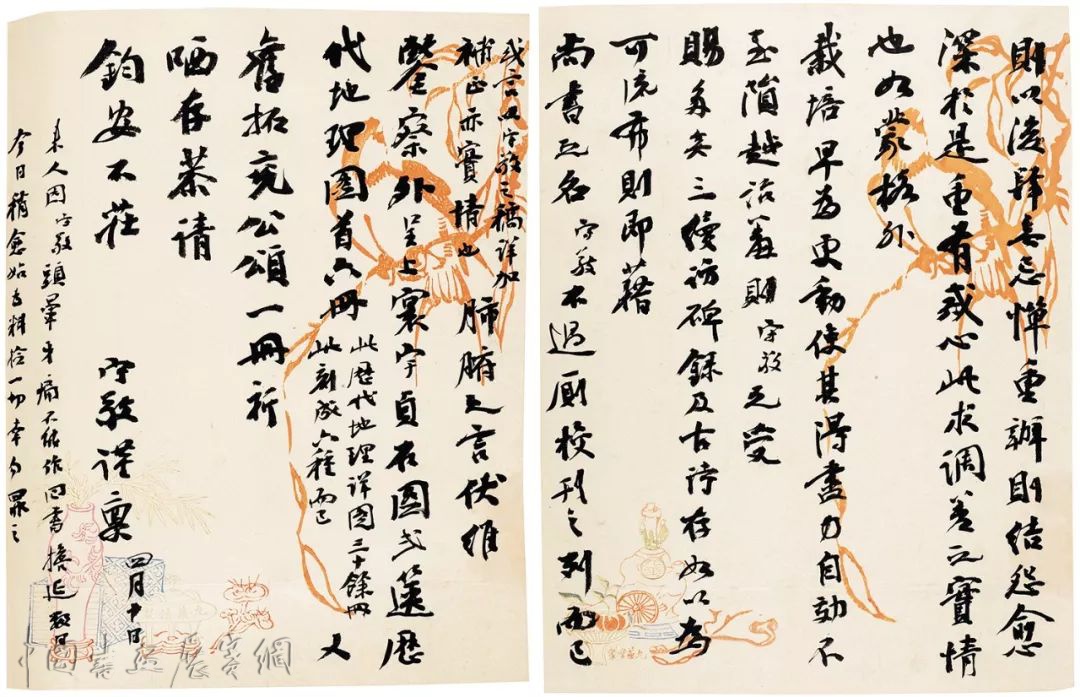 則以後肆無忌憚重辦則結怨愈
深於是重有戒心此求調差之實情
也如蒙格外
栽培早為更動使其得盡力自効不
至隕越詒羞則守敬之受
賜多矣三續訪碑錄及古詩存如以為
可流布則即藉
尚書之名守敬不過廁校刊之列而已
或言以守敬之稿詳加
補正亦實情也肺腑之言伏維
鑒察外呈上寰宇貞石圖弍篋歷
代地理圖首六冊此歷代地理詳圖三十餘冊此刻成六種而已又
舊拓兗公頌一冊祈
哂存恭請
鈞安不莊 守敬謹稟 四月十日
來人因守敬頭暈身痛不能作回書擔延數日
今日稍愈始料檢一切幸勿罪之
中國書畫展賽網